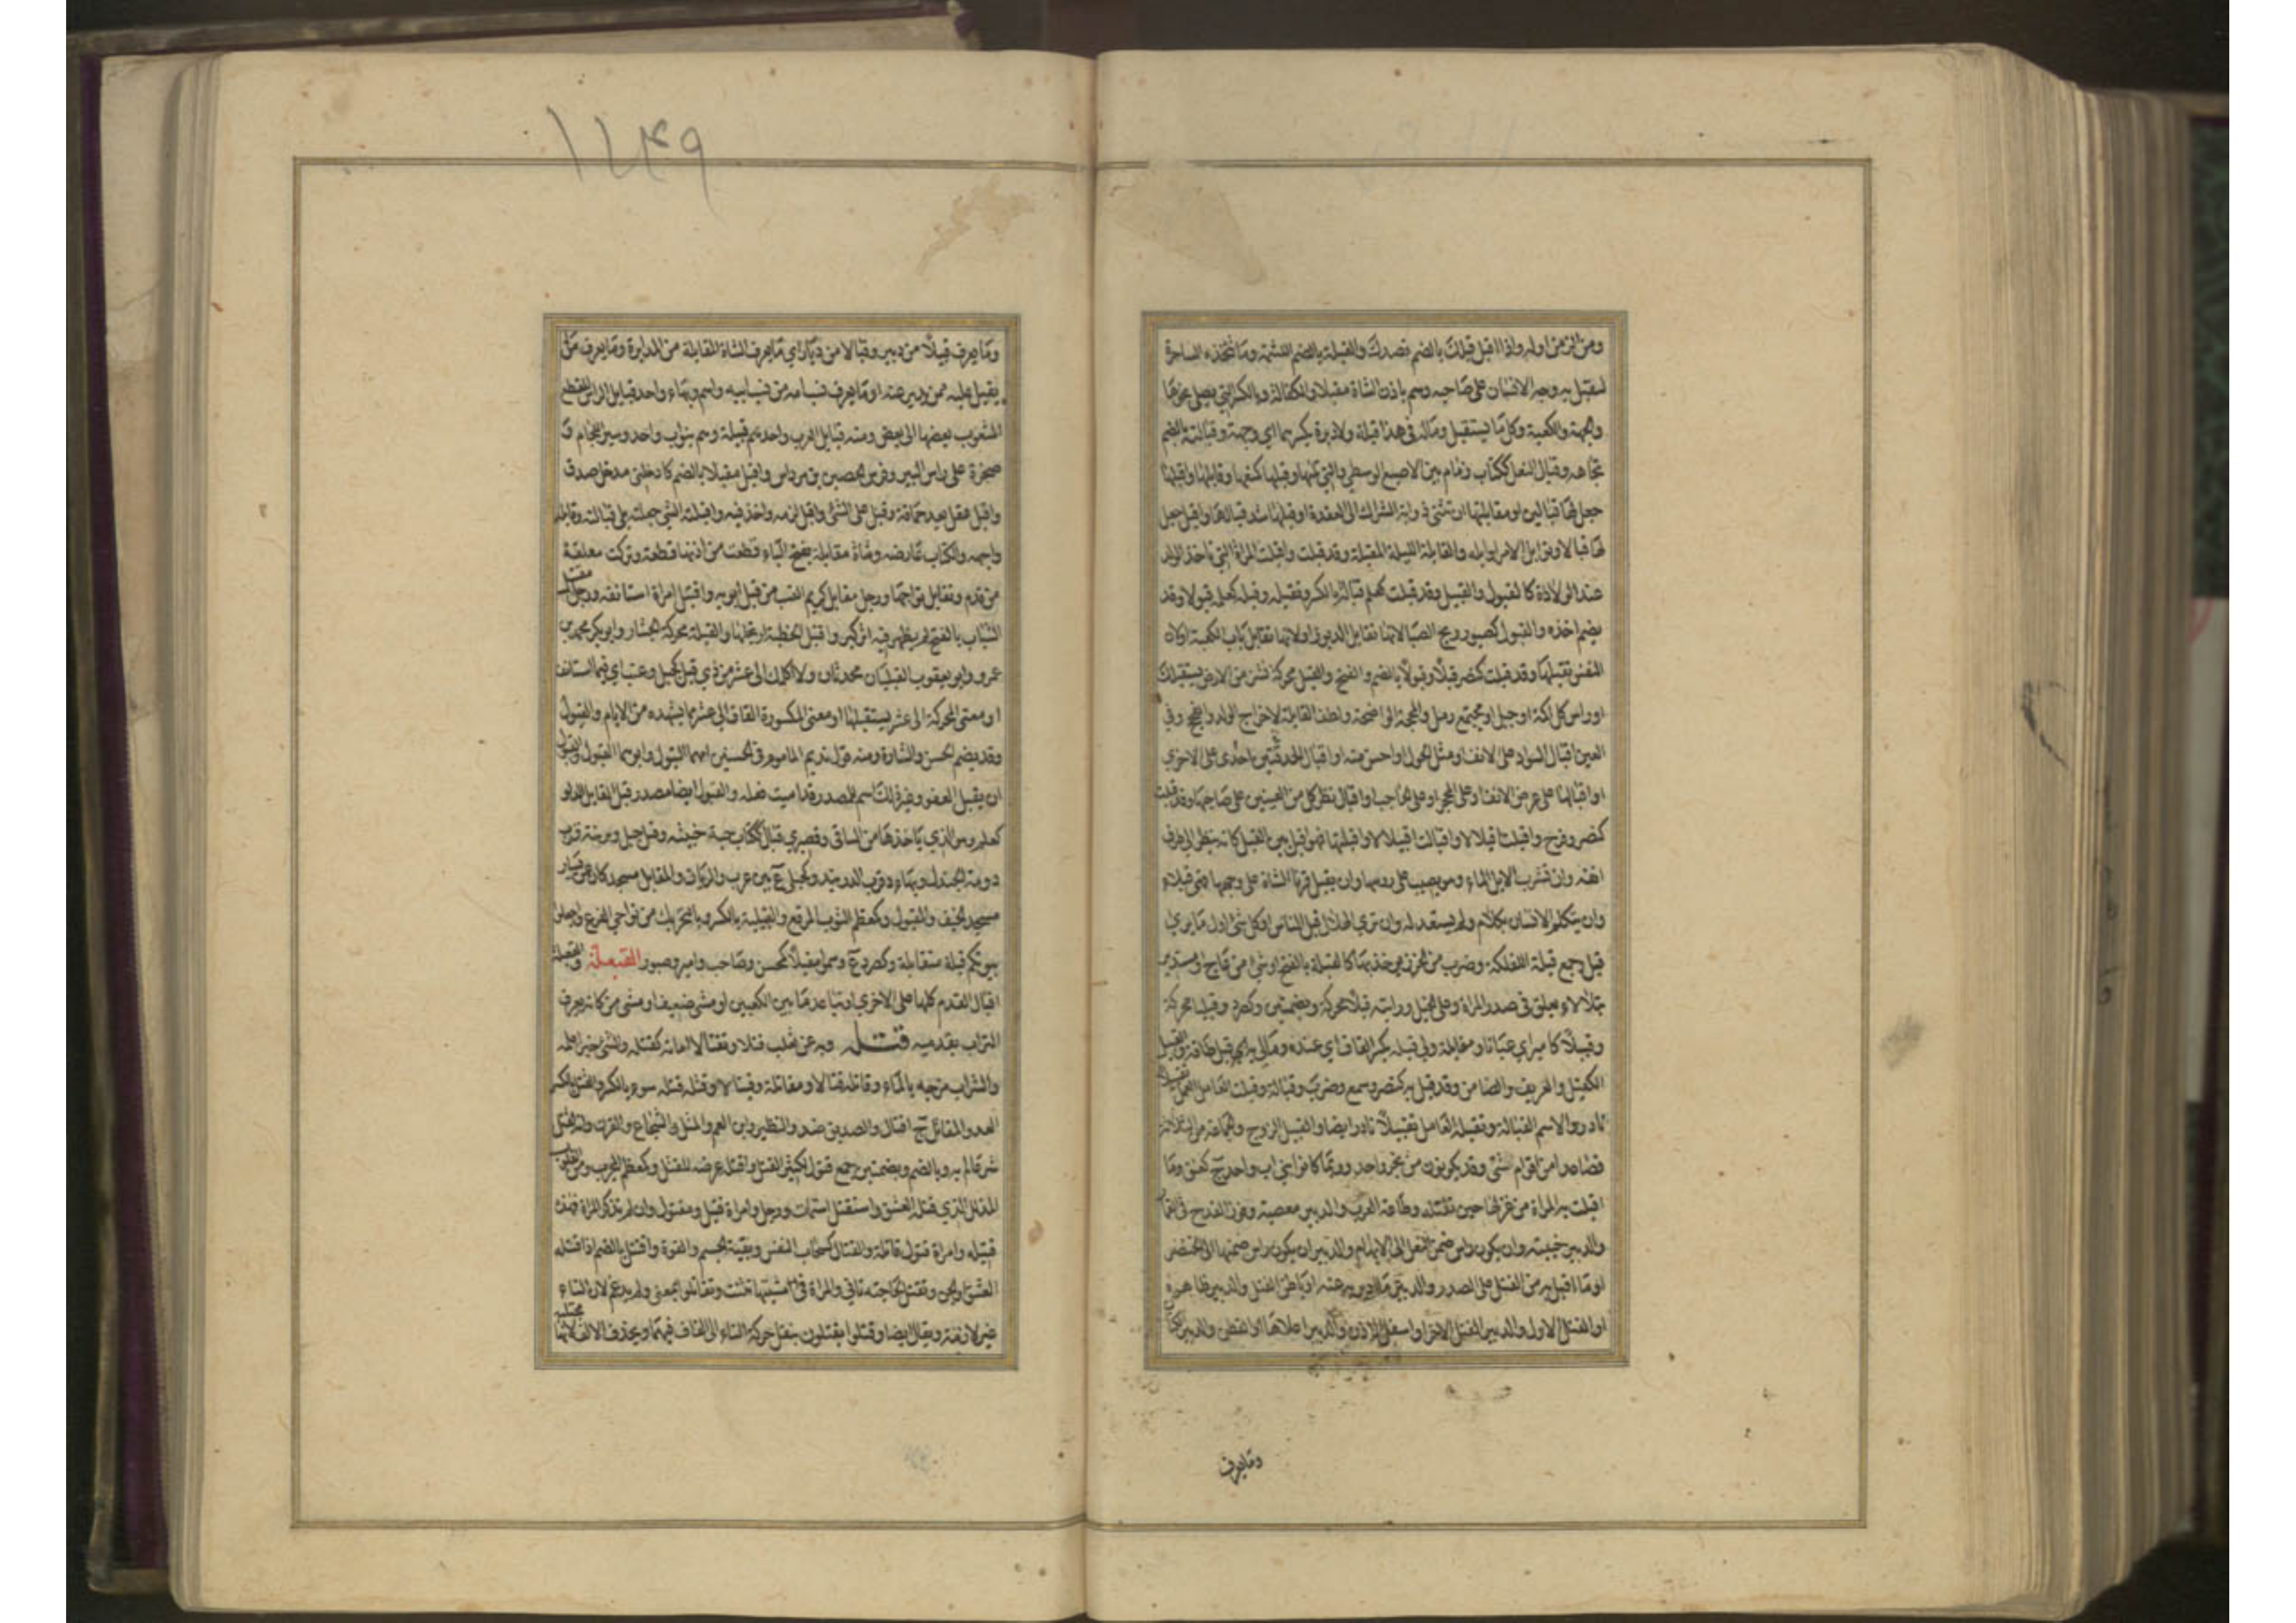 ومن الزمن اوله واذا اقبل قبلك بالضم قصدك والقبلة بالضم اللثمة وما تتخذه الساحرة
لتقبل به وجه الانسان على صاحبه ووسم باذن الشاة مقبلا والكفالة وبالكسر التي يصلى نحوها
والجهة والكعبة وكل ما يستقبل وماله في هذا قبلة ولا دبرة بكسرهما اي وجهة وقبالته بالضم
تجاهه وقبال النعل ككتاب زمام بين الاصبع الوسطى والتي تليها وقبلها كمنعها وقابلها واقبلها
جعل لها قبالين او مقابلتها ان تثنى ذوابة الشراك الى العقدة او قبلها شد قبالها واقبل جعل
لها قبالا وقوابل الامر اوايله والقابلة الليلة المقبلة وقد قبلت واقبلت المراة التي تاخذ الولد
عند الولادة كالقبول والقبيل وقد قبلت كعلم قبالة بالكسر وتقبله وقبله كعلمه قبولا وقد
يضم اخذه والقبول كصبور ريح الصبا لانها تقابل الدبور او لانها تقابل باب الكعبة او لان
النفس تقبلها وقد قبلت كنصر قبلا وقبولا بالضم والفتح والقبل محركة نشز من الارض يستقبلك
او راس كل اكمة او جبل او مجتمع رمل والمحجة الواضحة ولطف القابلة لاخراج الولد والفحج وفي
العين اقبال السواد على الانف او مثل الحول او احسن منه او اقبال احدى الحدقتين على الاخرى
او اقبالها على عرض الانف او على المحجر او على الحاجب او اقبال نظر كل من العينين على صاحبها وقد قبلت
كنصر وفرح واقبلت اقبلالا واقبالت اقبيلالا واقبلتها فهو اقبل بين القبل كانه ينظر الى طرف
انفه وان تشرب الابل الماء وهو يصب على روسها وان يقبل قرنا الشاة على وجهها فهي قبلاء
وان يتكلم الانسان بكلام ولم يستعد له وان ترى الهلال قبل الناس او كل شئ اول ما يرى
قبل وجمع قبلة للفلكة وضرب من الخرز يوخذ بها كالقبلة بالفتح او شئ من عاج مستدير
يتلالاء يعلق في صدر المراة وعلى الخيل ورايته قبلا محركة وبضمتين وكصرد وقبليا محركة
وقبيلا كامير اي عيانا ومقابلة ولي قبله بكسر القاف اي عنده ومالي به قبل طاقة والقبيل
الكفيل والعريف والضامن وقد قبل به كنصر وسمع وضرب وقبالة وقبلت العامل العمل تقبلا
نادر والاسم القبالة وتقبله العامل تقبيلا نادر ايضا والقبيل الزوج والجماعة من الثلاثة
فصاعدا من اقوام شتى وقد يكونون من نجر واحد وربما كانوا بني اب واحد ج كعنق وما
اقبلت به المراة من غزلها حين تفتله وطاعة الرب والدبير معصيته وفوز القدح في القمار
والدبير خيبته وان يكون راس ضمن النعل الى الابهام والدبير ان يكون راس ضمنها الى الخنصر
او ما اقبل به من الفتل على الصدر والدبير ما ادبر به عنه او باطن الفتل والدبير ظاهره
او الفتل الاول والدبير الفتل الاخر او اسفل الاذن والدبير اعلاها او القطن والدبير الكتان
وما يعرف
وما يعرف قبيلا من دبير وقبالا من دبار اي ما يعرف الشاة المقابلة من المدابرة وما يعرف من
يقبل عليه ممن يدبر عنه او ما يعرف نسب امه من نسب ابيه واسم وبهاء واحد قبايل الراس للقطع
المشعوب بعضها الى بعض ومنه قبايل العرب واحدهم قبيلة وهم بنو اب واحد وسير اللجام و
صخرة على راس البير وفرس الحصين بن مرداس واقبل مقبلا بالضم كادخلني مدخل صدق
واقبل عقل بعد حماقة وقبل على الشئ واقبل لزمه واخذ فيه واقبلته الشئ جعلته يلي قبالته وقابله
واجهه والكتاب عارضه وشاة مقابلة بفتح الباء قطعت من اذنها قطعة وتركت معلقة
من قدم وتقابل تواجها ورجل مقابل كريم النسب من قبل ابويه واقتبل امره استانفه ورجل مقتبل
الشباب بالفتح لم يظهر فيه اثر كبر واقتبل الخطبة ارتجلها والقبلة محركة الجشار وابو بكر محمد بن
عمر وابو يعقوب القبليان محدثان ولا اكلمك الى عشر من ذي قبل كجبل وعنب اي فيما استانف
او معنى المحركة الى عشر يستقبلها او معنى المكسورة القاف الى عشر مما يشهده من الايام والقبول
وقد يضم الحسن والشارة ومنه قول نديم المامون في الحسنين امهما البتول وابوهما القبول والقبول
ان يقبل العفو وغير ذلك اسم للمصدر قد اميت فعله والقبول ايضا مصدر قبل القابل الدلو
كعلم وهو الذي ياخذها من الساقي وقصيري قبال ككتاب حية خبيثة وقبل جبل وبزنة قرب
دومة الجندل وبهاء د قرب الدربند وكجبل ع بين عرب والريان والمقابل مسجد كان عن يسار
مسجد الخيف والمقبول وكمعظم الثوب المرقع والقبلية بالكسر وبالتحريك من نواحي الفرع واجعلوا
بيوتكم قبلة متقابلة وكصرد ع وسموا مقبلا كمحسن وصاحب وامير وصبور القبعلة والقعبلة
اقبال القدم كلها على الاخرى او تباعد ما بين الكعبين او مشى ضعيف او مشى من كانه يغرف
التراب بقدميه قتله وبه عن ثعلب قتلا وتقتالا اماته كقتله والشئ خبرا علمه
والشراب مزجه بالماء وقاتله قتالا ومقاتلة وقيتالا وقتله قتلة سوء بالكسر والقتل بالكسر
العدو والمقاتل ج اقتال والصديق ضد والنظير وابن العم والمثل والشجاع والقرن وانه لقتل
شر عالم به وبالضم وبضمتين جمع قتول لكثير القتل واقتله عرضه للقتل وكمعظم المجرب ومن القلوب
المذلل الذي قتله العشق واستقتل استمات ورجل وامراة قتيل ومقتول وان لم تذكر المراة فهذه
قتيلة وامراة قتول قاتلة والقتال كسحاب النفس وبقية الجسم والقوة واقتتل بالضم اذا قتله
العشق او الجن وتقتل لحاجته تاني والمراة في مشيتها تثنت وتقاتلوا بمعنى ولم يدغم لان التاء
غير لازمة ويقال ايضا وقتلوا يقتلون بنقل حركة التاء الى القاف فيهما ويحذف الالف لانها